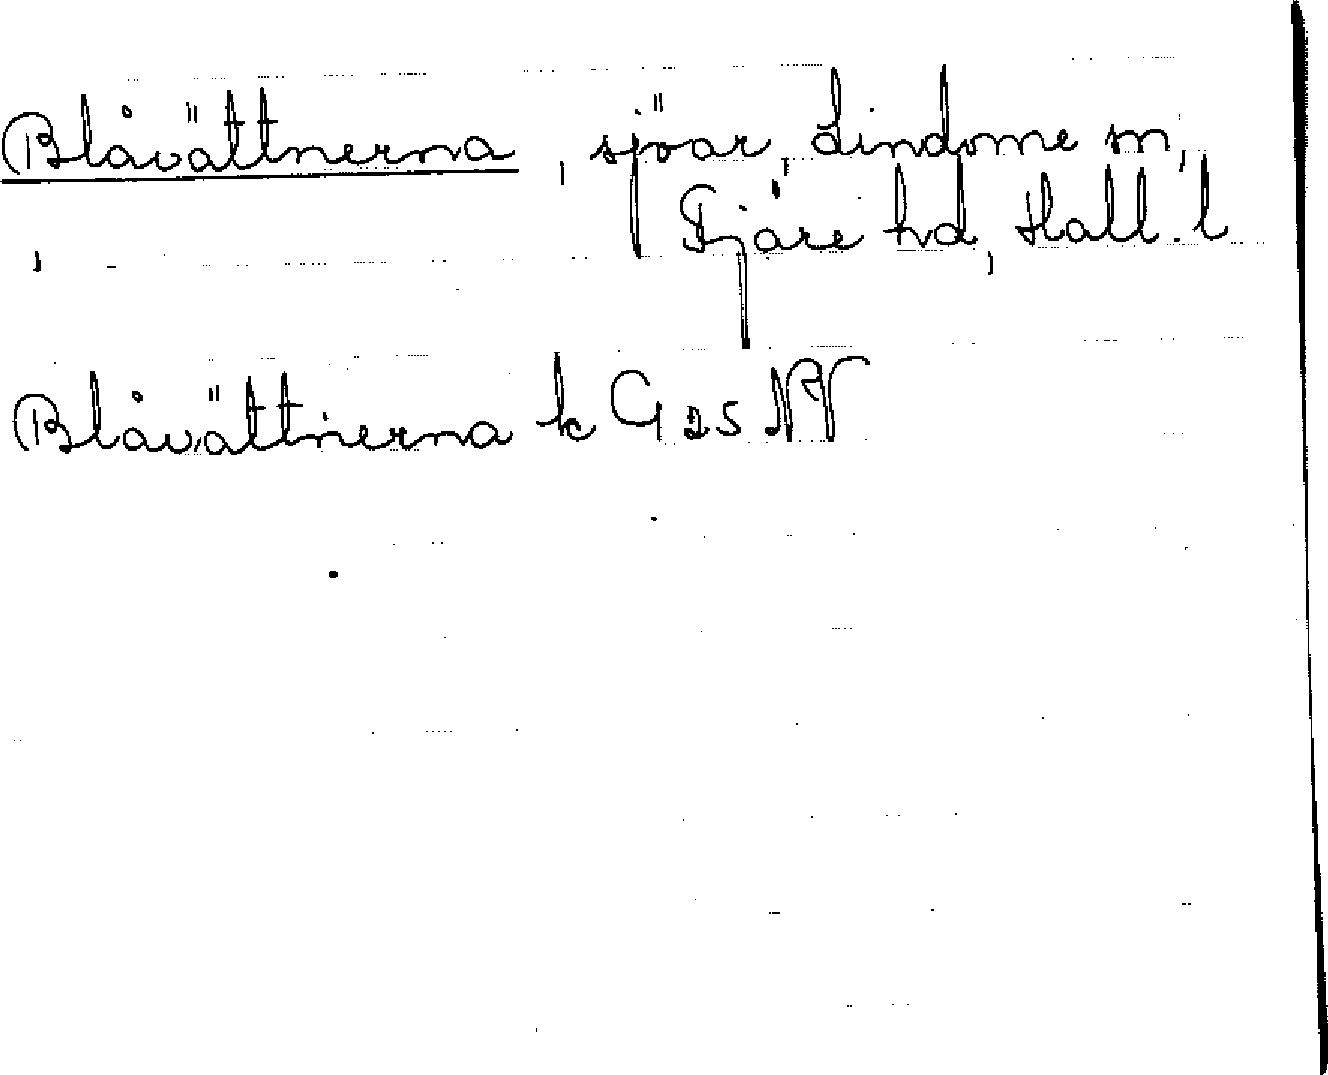 Blåvättnerna, sjöar, Lindome sn,
Fjäre hd, Hall. l
Blåvättnerna k G 25 NV